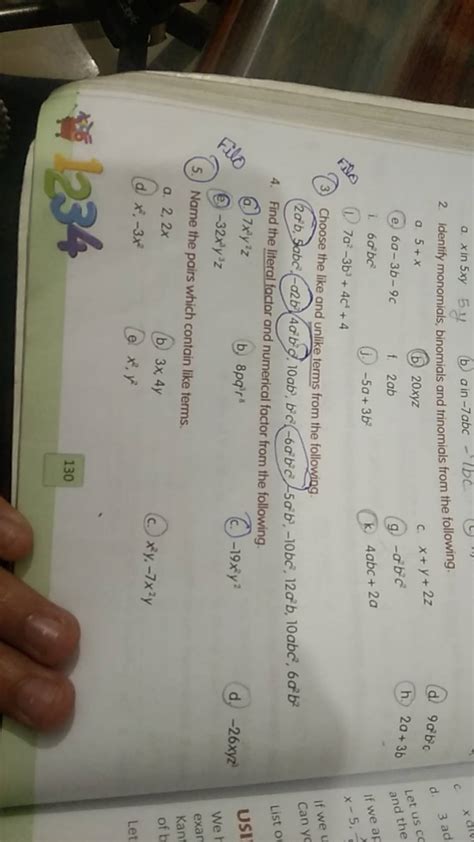 a. x in 5xy 5y (b) a in -7abc
2. Identify monomials, binomials and trinomials from the following.
a. 5 + x (b) 20xyz c. x + y + 2z (d) 9a²b²c
(e) 6a - 3b - 9c f. 2ab (g) -a²b²c² (h) 2a + 3b
i. 6a²bc² (j) -5a + 3b² (k) 4abc + 2a
(l) 7a² - 3b³ + 4c⁴ + 4
(3) Choose the like and unlike terms from the following.
2a²b, 5abc², -a2b², 4a²b²c², 10ab³, b²c², -6a²b²c², -5a²b², -10bc², 12a²b, 10abc², 6a²b²
4. Find the literal factor and numerical factor from the following.
(a) 7x²y²z (b) 8pq³r⁸ (c) -19x²y² (d) -26xyz²
(e) -32x³y³z
(5) Name the pairs which contain like terms.
a. 2, 2x (b) 3x, 4y (c) x²y, -7x²y
(d) x², -3x² (e) x², y²
130
1234
c. x
d. 3 ad
Let us
and the
If we
x - 5,
If we
Can
List
USI
We
exam
Kant
of b
Let